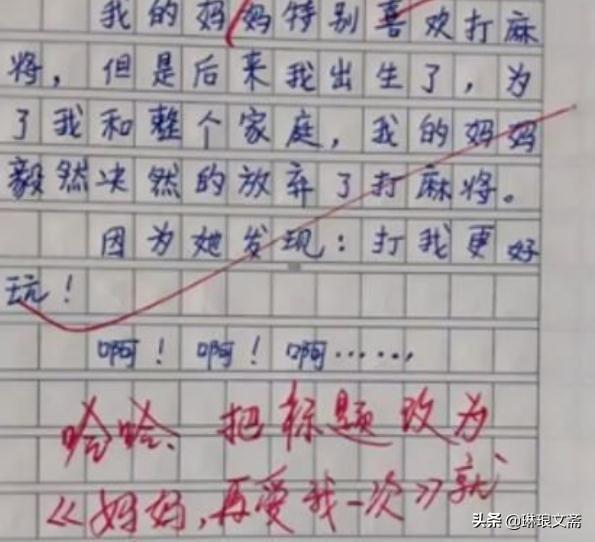 我的妈妈特别喜欢打麻
将，但是后来我出生了，为
了我和整个家庭，我的妈妈
毅然决然的放弃了打麻将。
因为她发现：打我更好
玩！
啊！啊！啊……
哈哈、把标题改为
《妈妈，再爱我一次》就
头条 @琳琅文斋